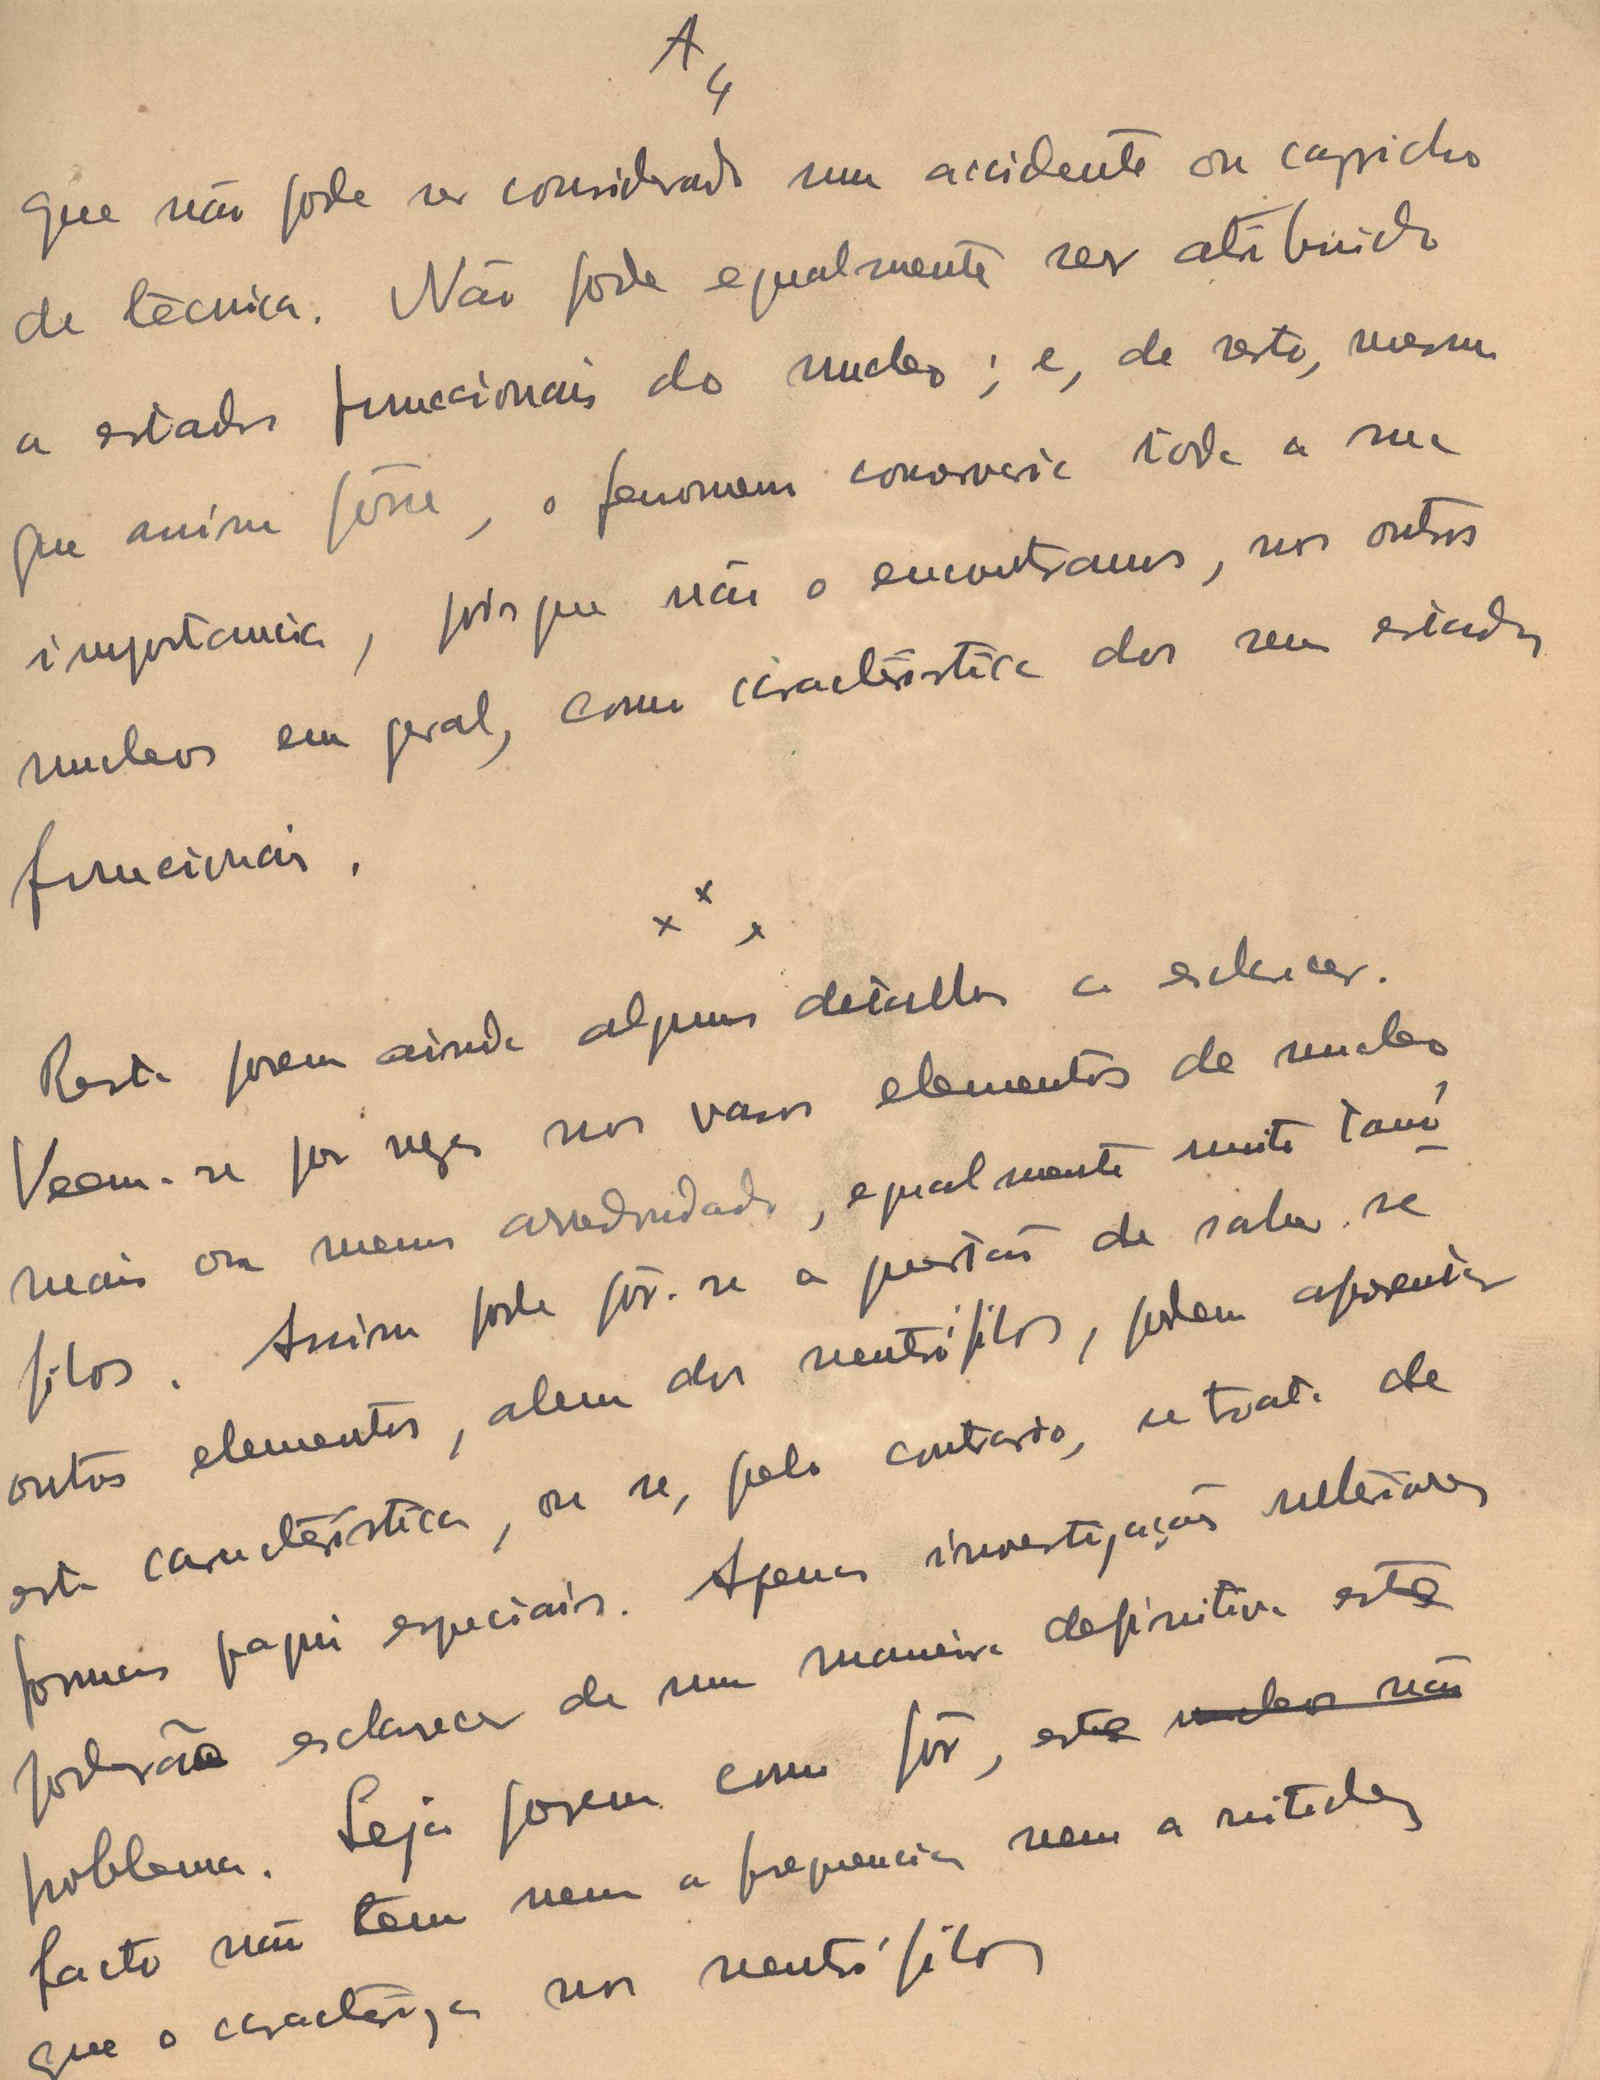 A4
que não pode ser considerado um accidente ou capricho
de técnica. Não pode egualmente ser atribuido
a estados funccionais do nucleo; e, de resto, mesmo
que assim fôsse, o fenomeno conservaria toda a sua
importancia, pois que não o encontramos, nos outros
nucleos em geral, como caracteristica dos seus estados
funcionais.
x x x
Resta porem ainda alguns detalhes a esclarecer.
Veem-se por vezes nos vasos elementos de nucleo
mais ou menos arredondado, egualmente muito
filos. Assim pode pôr-se a questão de saber se
outros elementos, alem dos neutrófilos, podem apresentar
esta caracteristica, ou se, pelo contrario, se trata de
formas aqui especiais. Apenas investigações ulteriores
poderão esclarecer de uma maneira definitiva este
problema. Seja porem como fôr, este nucleos não
facto não tem nem a frequencia nem a nitidez
que o caracteriza nos neutrófilos